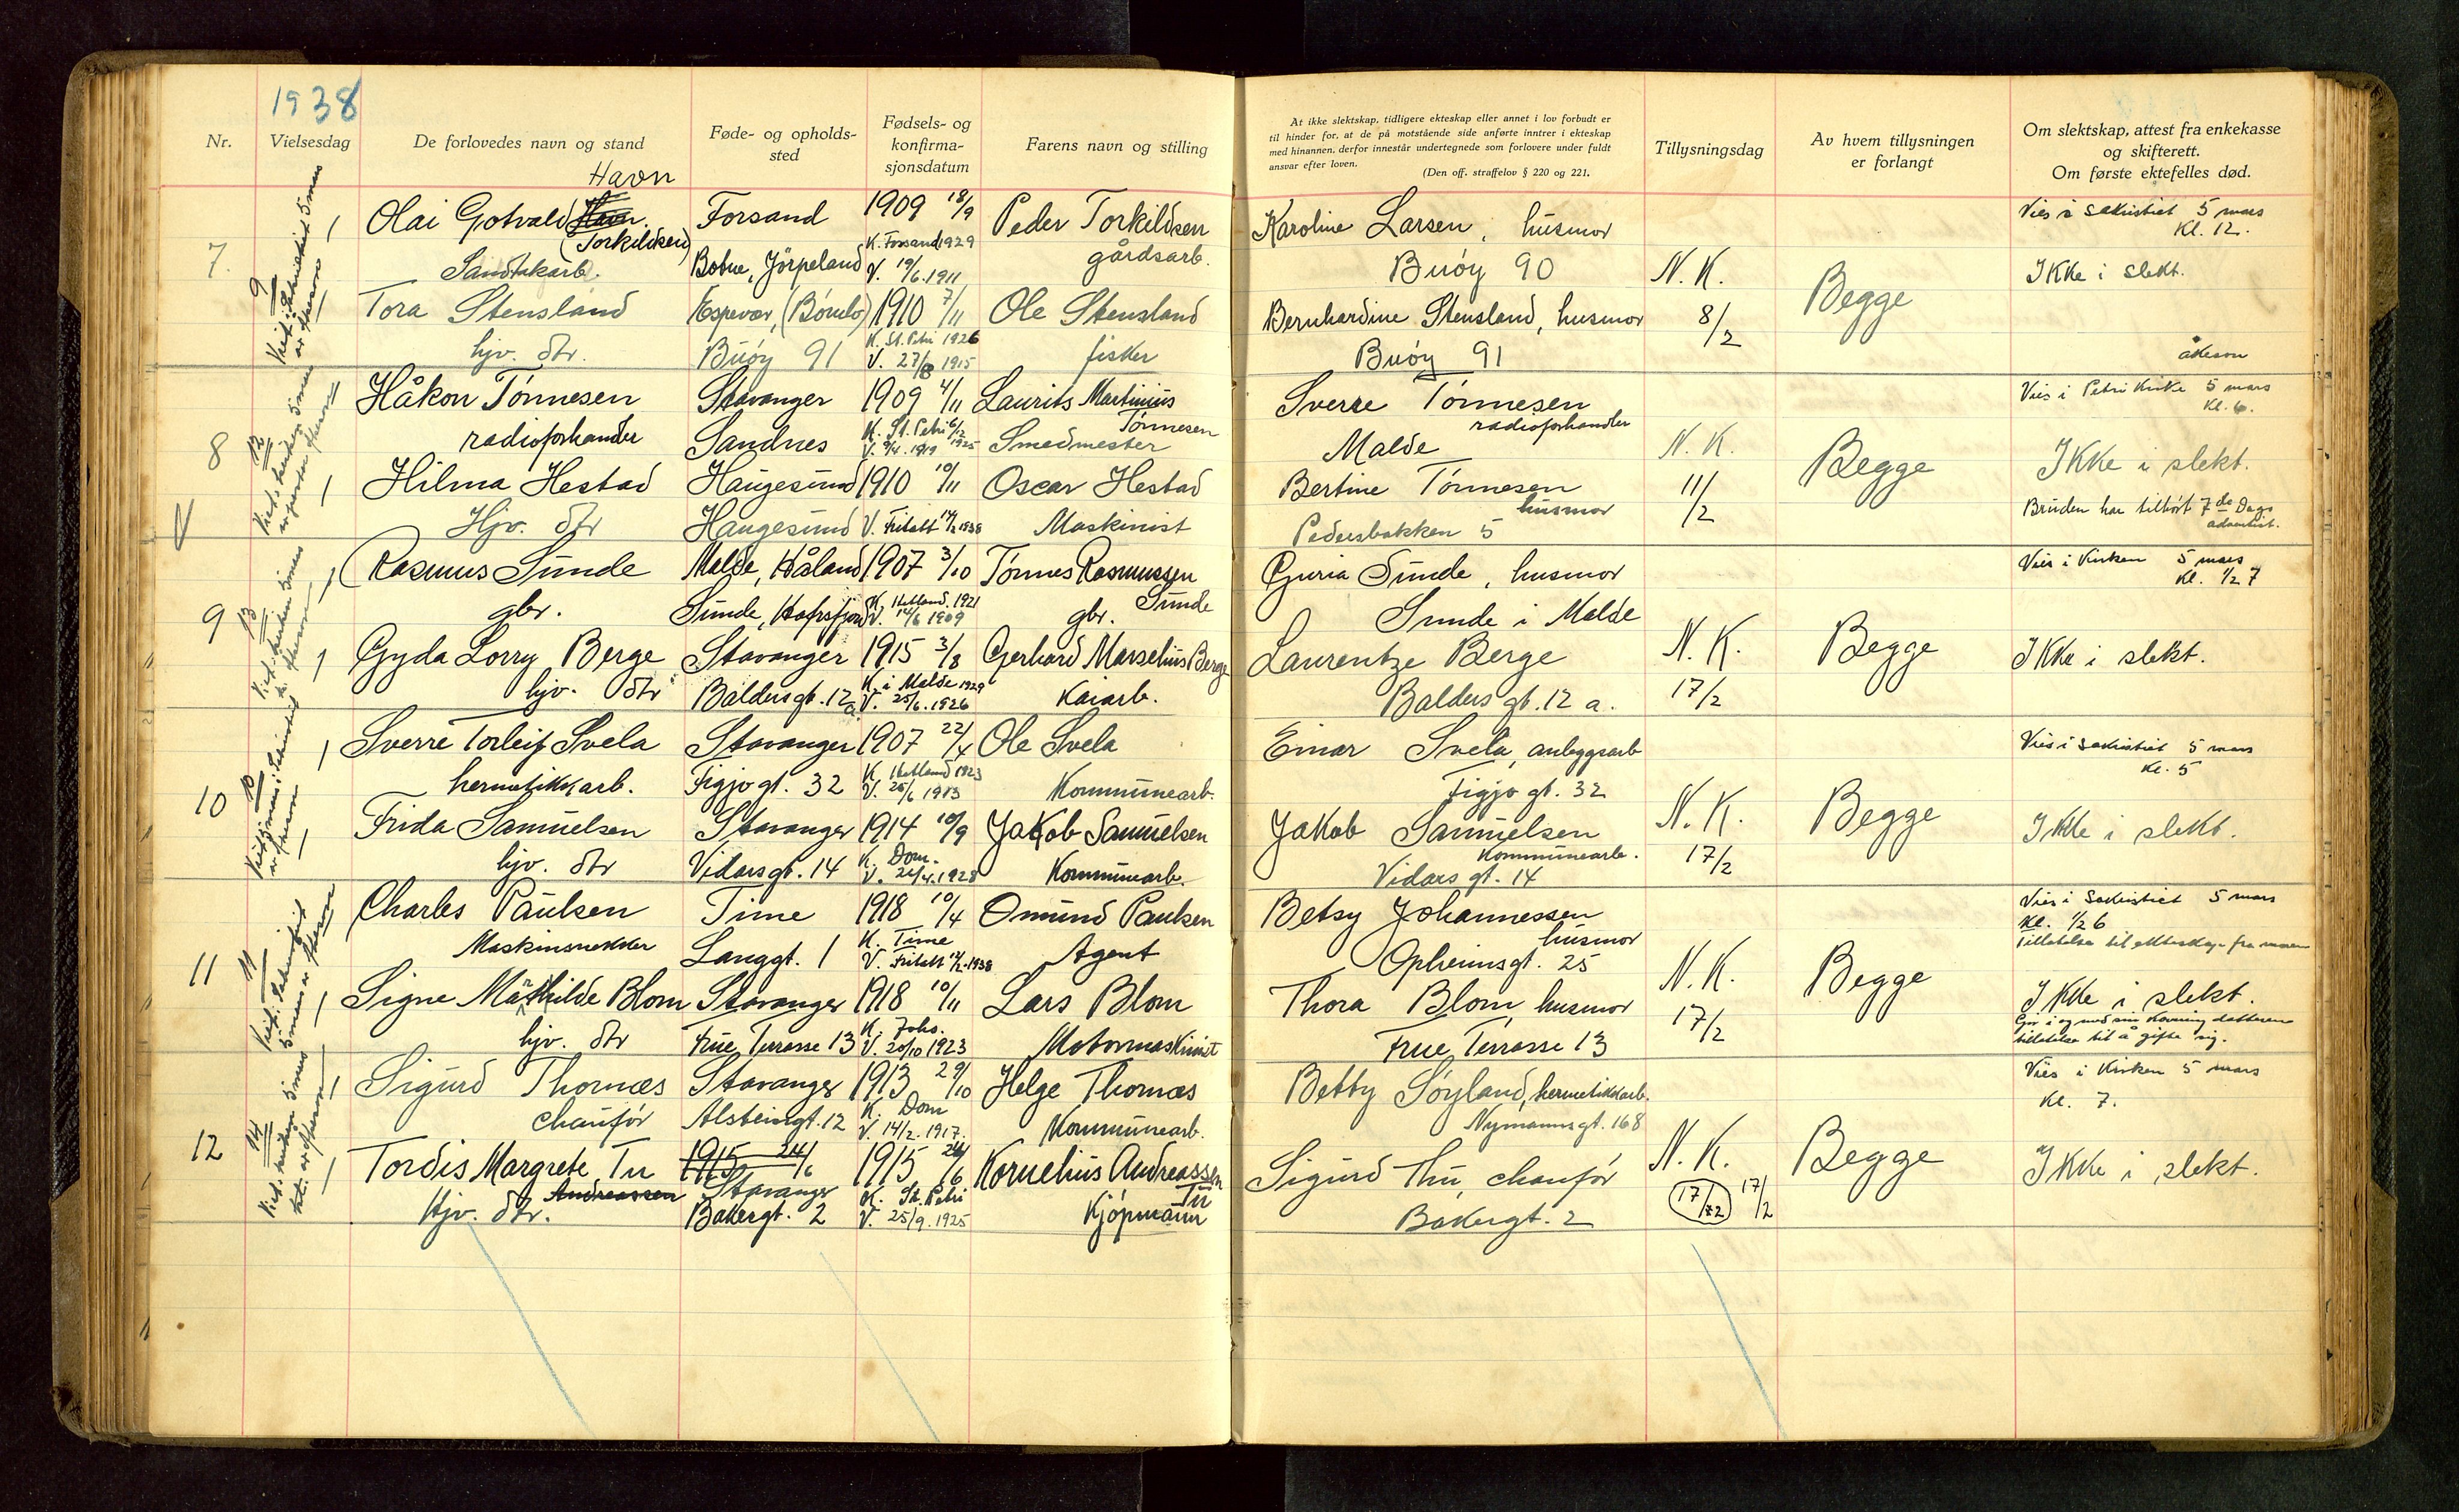 1938
Nr.
Vielsesdag
De forlovedes navn og stand
Føde- og opholds-
sted
Fødsels- og
konfirma-
sjonsdatum
Farens navn og stilling
At ikke slektskap, tidligere ekteskap eller annet i lov forbudt er
til hinder for, at de på motstående side anførte inntrer i ekteskap
med hinannen, derfor innestår undertegnede som forlovere under fuldt
ansvar efter loven.
(Den off. straffelov § 220 og 221.
Tillysningsdag
Av hvem tillysningen
er forlangt
Om slektskap, attest fra enkekasse
og skifterett.
Om første ektefelles død.
7.
9
Havn
Olai Gotvald Havn
(Torkildsen)
Forsand
1909 18/9
Peder Torkildsen
K. Forsand 1929
gårdsarb.
Jørpeland
V. 19/6.1911
Tora Stensland
Espevær, (Bømlo)
1910 7/11
Ole Stensland
hjv. dtr.
Buøy 91
K. St. Petri 1926
V. 27/8 1915
fisker
Karoline Larsen, husmor
Buøy 90
Bernhardine Stensland, husmor
Buøy 91
N. K.
8/2
Begge
Vies i sakristiet 5 mars
Kl. 12.
Ikke i slekt.
8
12
Håkon Tønnesen
Stavanger
1909 4/11
Laurits Martinius
Tønnesen
radioforhandler
Sandnes
K. St. Petri 6/12 1925
V. 9/4.1919
Smedmester
Hilma Hestad
Haugesund
1910 10/11
Oscar Hestad
Hjv. dtr
Haugesund
Maskinist
Sverre Tønnesen
radioforhandler
Malde
Bertine Tønnesen
husmor
Pedersbakken 5
N. K.
11/2
Begge
Vies i Petri Kirke 5 mars
Kl. 6.
Ikke i slekt.
Bruden har tilhørt 7de Dags
adventist.
9
13
Rasmus Sunde
Malde, Håland
1907 3/10
Tønnes Rasmussen
Sunde
gbr.
Sunde, Hafrsfjord
K. Hetland. 1921
V. 14/6 1909
gbr.
Gyda Lorry Berge
Stavanger
1915 3/8
Gerhard Marselius Berge
hjv. dtr
Baldersgt. 12 a
K. i Malde 1929
V. 25/6.1926
Kaiarb.
Guria Sunde, husmor
Sunde i Malde
Laurentze Berge
Balders gt. 12 a.
N. K.
17/2
Begge
Vies i Kirken 5 mars
Kl. 1/2 7
Ikke i slekt.
10
10
Sverre Torleif Svela
Stavanger
1907 22/4
Ole Svela
hermetikkarb.
Figjo gt. 32
K. Hetland 1923
V. 25/6 1913
Kommunearb.
Frida Samuelsen
Stavanger
1914 10/9
Jakob Samuelsen
hjv. dtr
Vidarsgt. 14
K. Dom.
Kommunearb.
Einar Svela, anleggsarb
Figjo gt. 32
Jakob Samuelsen
Kommunearb.
Vidars gt. 14
N. K.
17/2
Begge
Vies i sakristiet 5 mars
Kl. 5
Ikke i slekt.
11
11
Charles Paulsen
Time
1918 10/4
Omund Paulsen
Maskinsnekker
Langgt. 1
K. Time
Agent
Signe Mathilde Blom
Stavanger
1918 10/11
Lars Blom
hjv. dtr
Frue Terrasse 13
K. Johs.
V. 20/10 1923
Motormaskinist
Betsy Johannessen
husmor
Opheimsgt. 25
Thora Blom, husmor
Frue Terrasse 13
N. K.
17/2
Begge
Vies i Sakristiet 5 mars
Kl. 1/2 6
Tillatelse til ekteskap fra moren
Ikke i slekt.
tillatelse til å gifte sig.
12
14
Sigurd Thornæs
Stavanger
1913 29/10
Helge Thornæs
chauför
Alsteingt. 12
K. Dom
V. 14/2. 1917.
Kommunearb.
Tordis Margrete Tu
Andreassen
1915 24/6
1915 24/6
Kornelius Andreassen
Tu
Hjv. dtr.
Stavanger
Bakergt. 2
K. St. Petri
V. 25/9.1925
Kjøpmann
Betty Søyland, hermetikkarb.
Nymannsgt. 168
Sigurd Thu, chauför
Bakergt. 2
N. K.
17/2 17/2
Begge
Vies i Kirken 5 mars
Kl. 7.
Ikke i slekt.